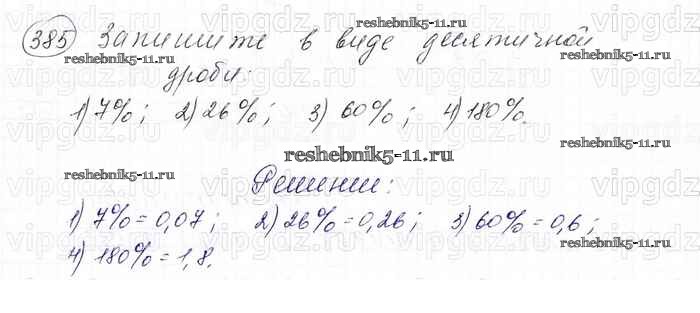 385 Запишите в виде десятичной
дроби:
1) 7%; 2) 26%; 3) 60%; 4) 180%.
Решение:
1) 7% = 0,07; 2) 26% = 0,26; 3) 60% = 0,6;
4) 180% = 1,8.
reshebnik5-11.ru
reshebnik5-11.ru
reshebnik5-11.ru
reshebnik5-11.ru
reshebnik5-11.ru
reshebnik5-11.ru
reshebnik5-11.ru
vipgdz.ru